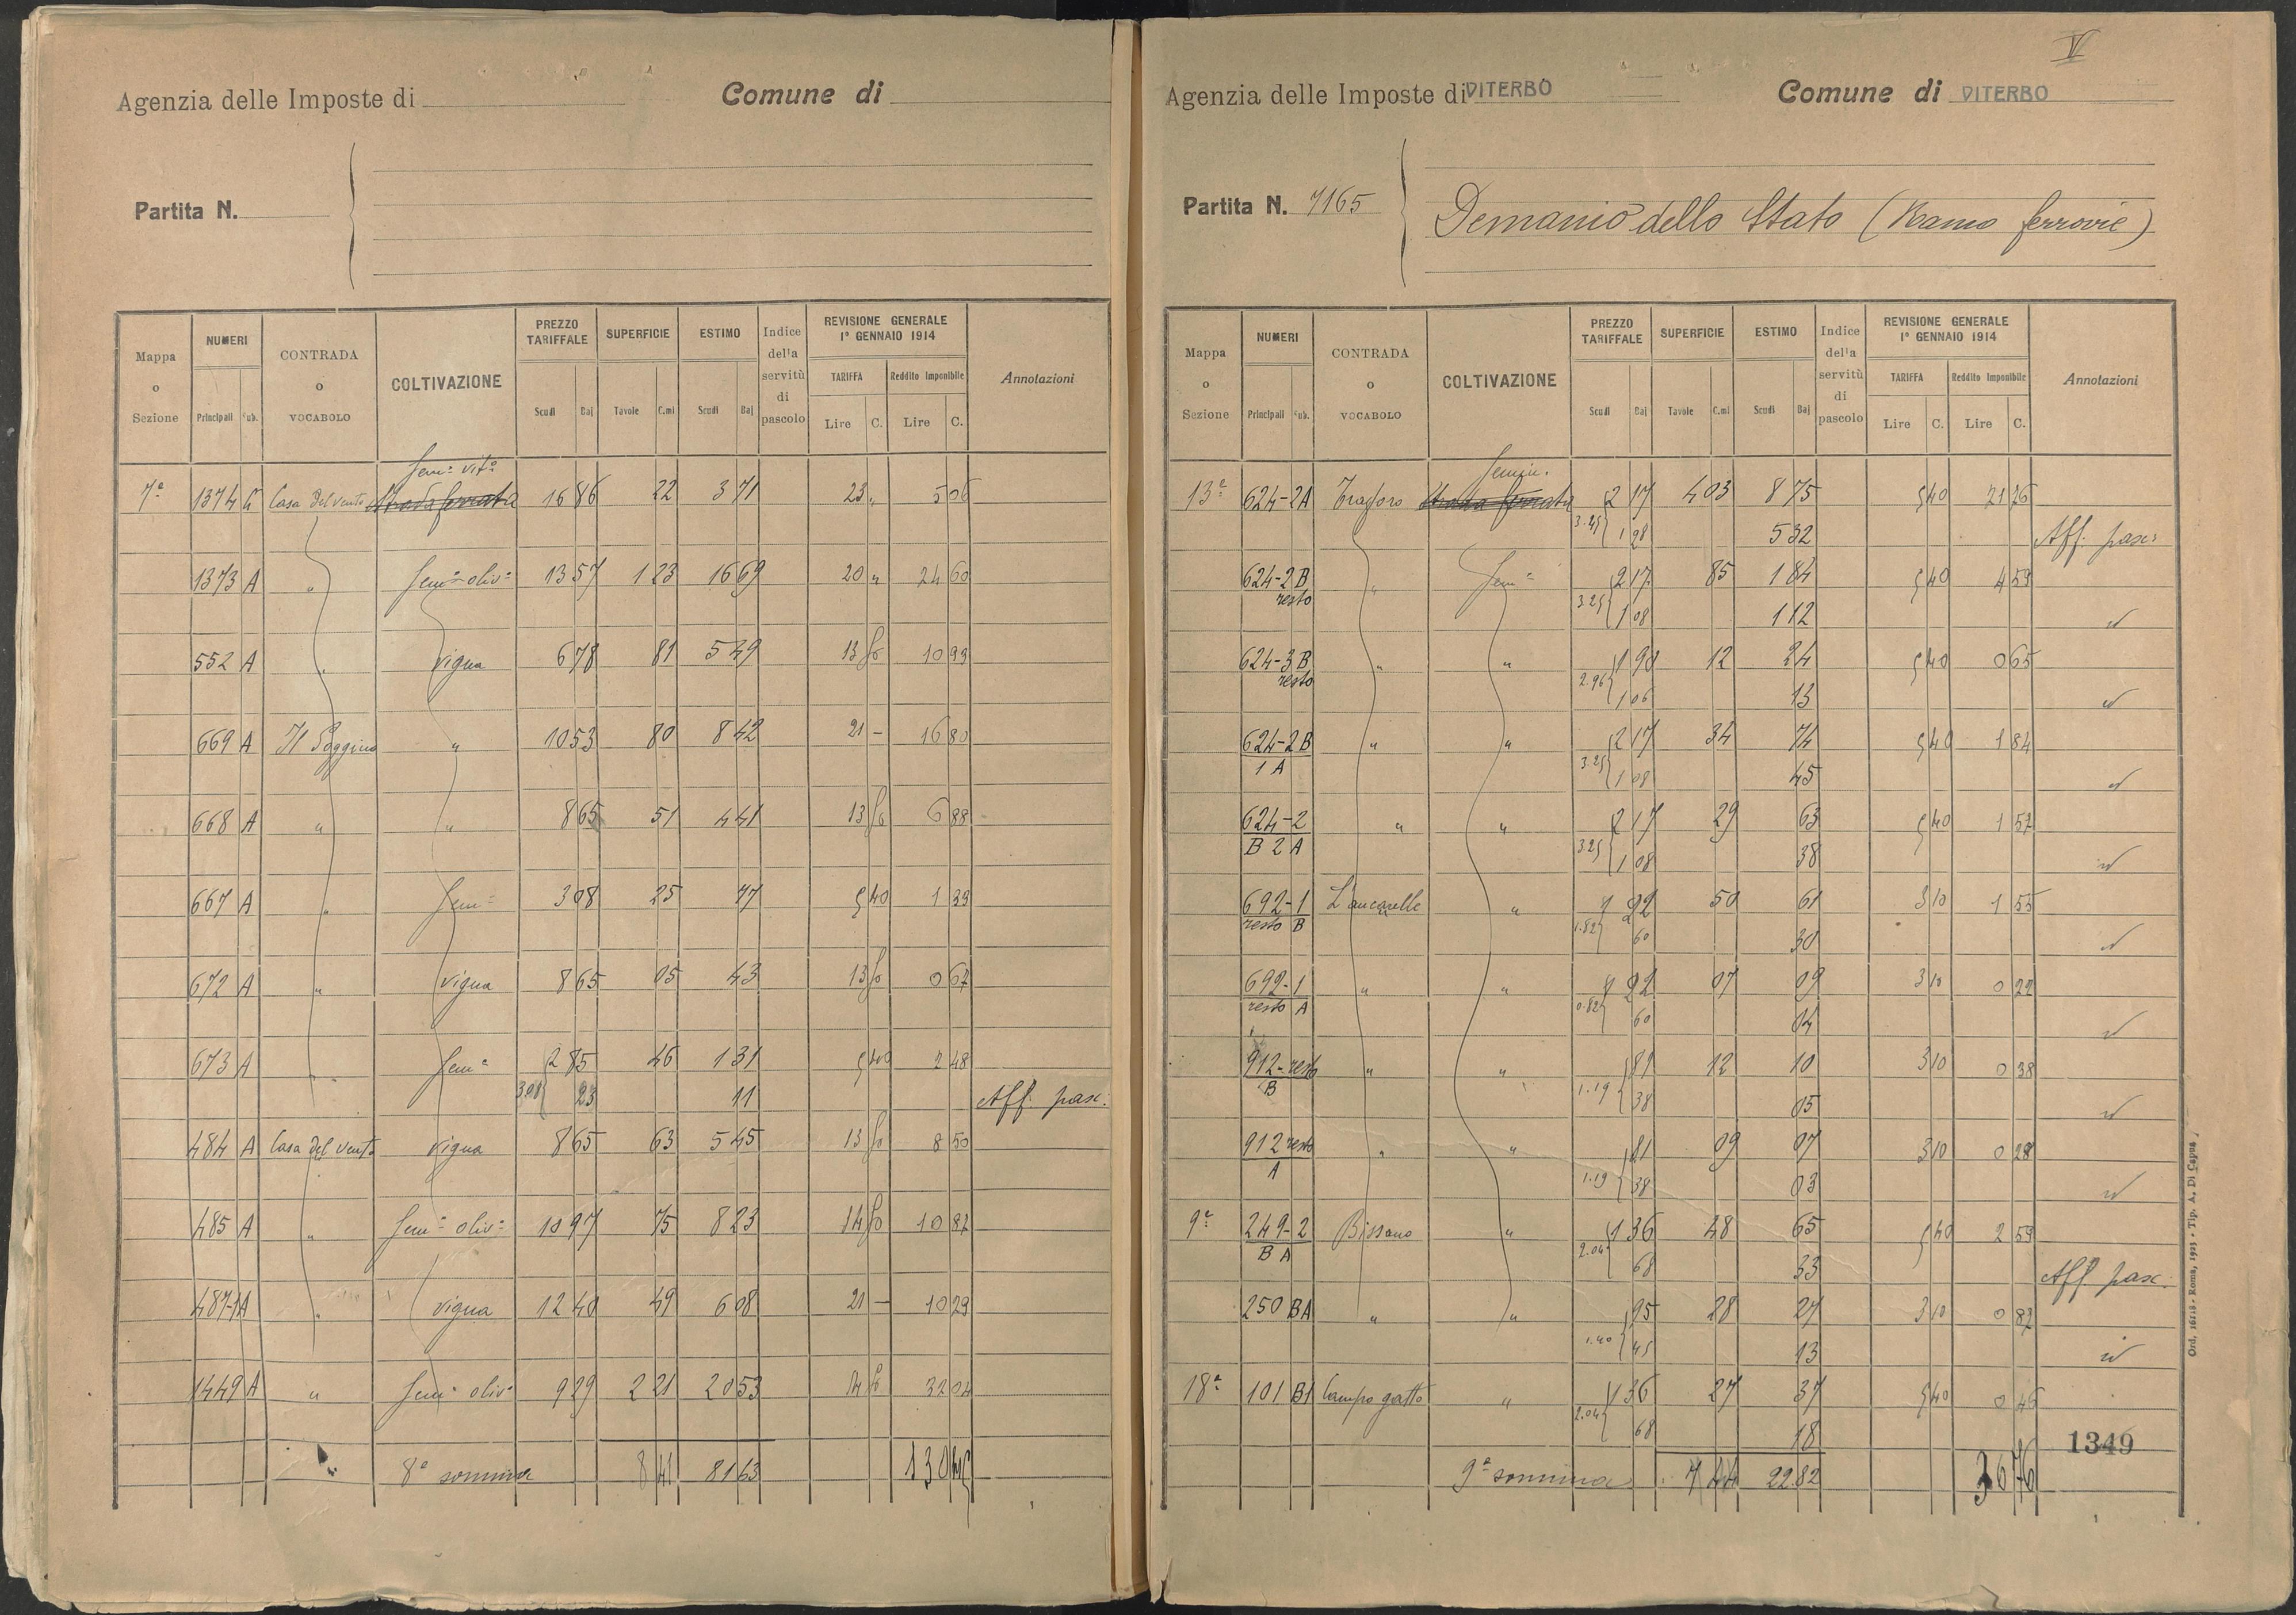 Agenzia delle Imposte di Comune di
Partita N.
Mappa o Sezione NUMERI Principali Sub. CONTRADA o VOCABOLO COLTIVAZIONE PREZZO TARIFFALE Scudi Baj SUPERFICIE Tavole C.mi ESTIMO Scudi Baj Indice della servitù di pascolo REVISIONE GENERALE 1° GENNAIO 1914 TARIFFA Lire C. Reddito Imponibile Lire C. Annotazioni
Sem.° vit.°
7ª 1374 Casa del vento Strada ferrata 16 86 22 3 71 23 " 5 06
1373 A " Sem.° oliv.° 13 57 1 23 16 69 20 " 24 60
552 A " Vigna 6 78 81 5 49 13 10 93
669 A Il Poggino " 10 53 80 8 42 21 – 16 80
668 A " " 8 65 51 4 41 13 6 88
667 A " Sem.° 3 08 25 77 5 40 1 39
672 A " Vigna 8 65 05 43 13 0 67
673 A " Sem.° 2 85 46 1 31 5 40 2 48
3.08 23 11 Aff. pasc:
484 A Casa del vento Vigna 8 65 63 5 45 13 8 50
485 A " Sem.° oliv.° 10 97 75 8 23 14 50 10 87
487-1A " Vigna 12 40 49 6 08 21 – 10 29
1449 A " Sem.° oliv.° 9 29 2 21 20 53 14 50 32 04
8ª somma 8 41 81 63 130
V
Agenzia delle Imposte di VITERBO Comune di VITERBO
Partita N. 7165 Demanio dello Stato (Ramo ferrovie)
Mappa o Sezione NUMERI Principali Sub. CONTRADA o VOCABOLO COLTIVAZIONE PREZZO TARIFFALE Scudi Baj SUPERFICIE Tavole C.mi ESTIMO Scudi Baj Indice della servitù di pascolo REVISIONE GENERALE 1° GENNAIO 1914 TARIFFA Lire C. Reddito Imponibile Lire C. Annotazioni
Semin.
13ª 624-2A Traforo Strada ferrata 2 17 4 03 8 75 5 40 21 76
3.25 1 28 5 32 Aff. pasc:
624-2B " Sem.° 2 17 85 1 84 5 40 4 59
resto 3.25 1 08 1 12 id
624-3B " " 1 90 12 24 5 40 0 65
resto 2.96 1 06 13 id
624-2B " " 2 17 34 74 5 40 1 84
1 A 3.25 1 08 45 id
624-2 " " 2 17 29 63 5 40 1 57
B 2 A 3.25 1 08 38 id
692-1 " 1 22 50 61 3 10 1 55
resto B 1.82 60 30 id
692-1 " " 1 22 07 09 3 10 0 22
resto A 0.82 60 04 id
912-resto " " 81 12 10 3 10 0 38
B 1.19 38 05 id
912 resto " " 81 09 07 3 10 0 28
A 1.19 38 03 id
9ª 249-2 Bissano " 1 36 48 65 5 40 2 59
B A 2.04 68 33 Aff pasc:
250 BA " " 95 28 27 3 10 0 87
1.40 45 13 id
18ª 101 B1 Campo gatto " 1 36 27 37 5 40 0 46
2.04 68 18
1349
9ª somma 7 44 22 82 36 76
Ord. 16118 - Roma, 1923 - Tip. A. Di Capua